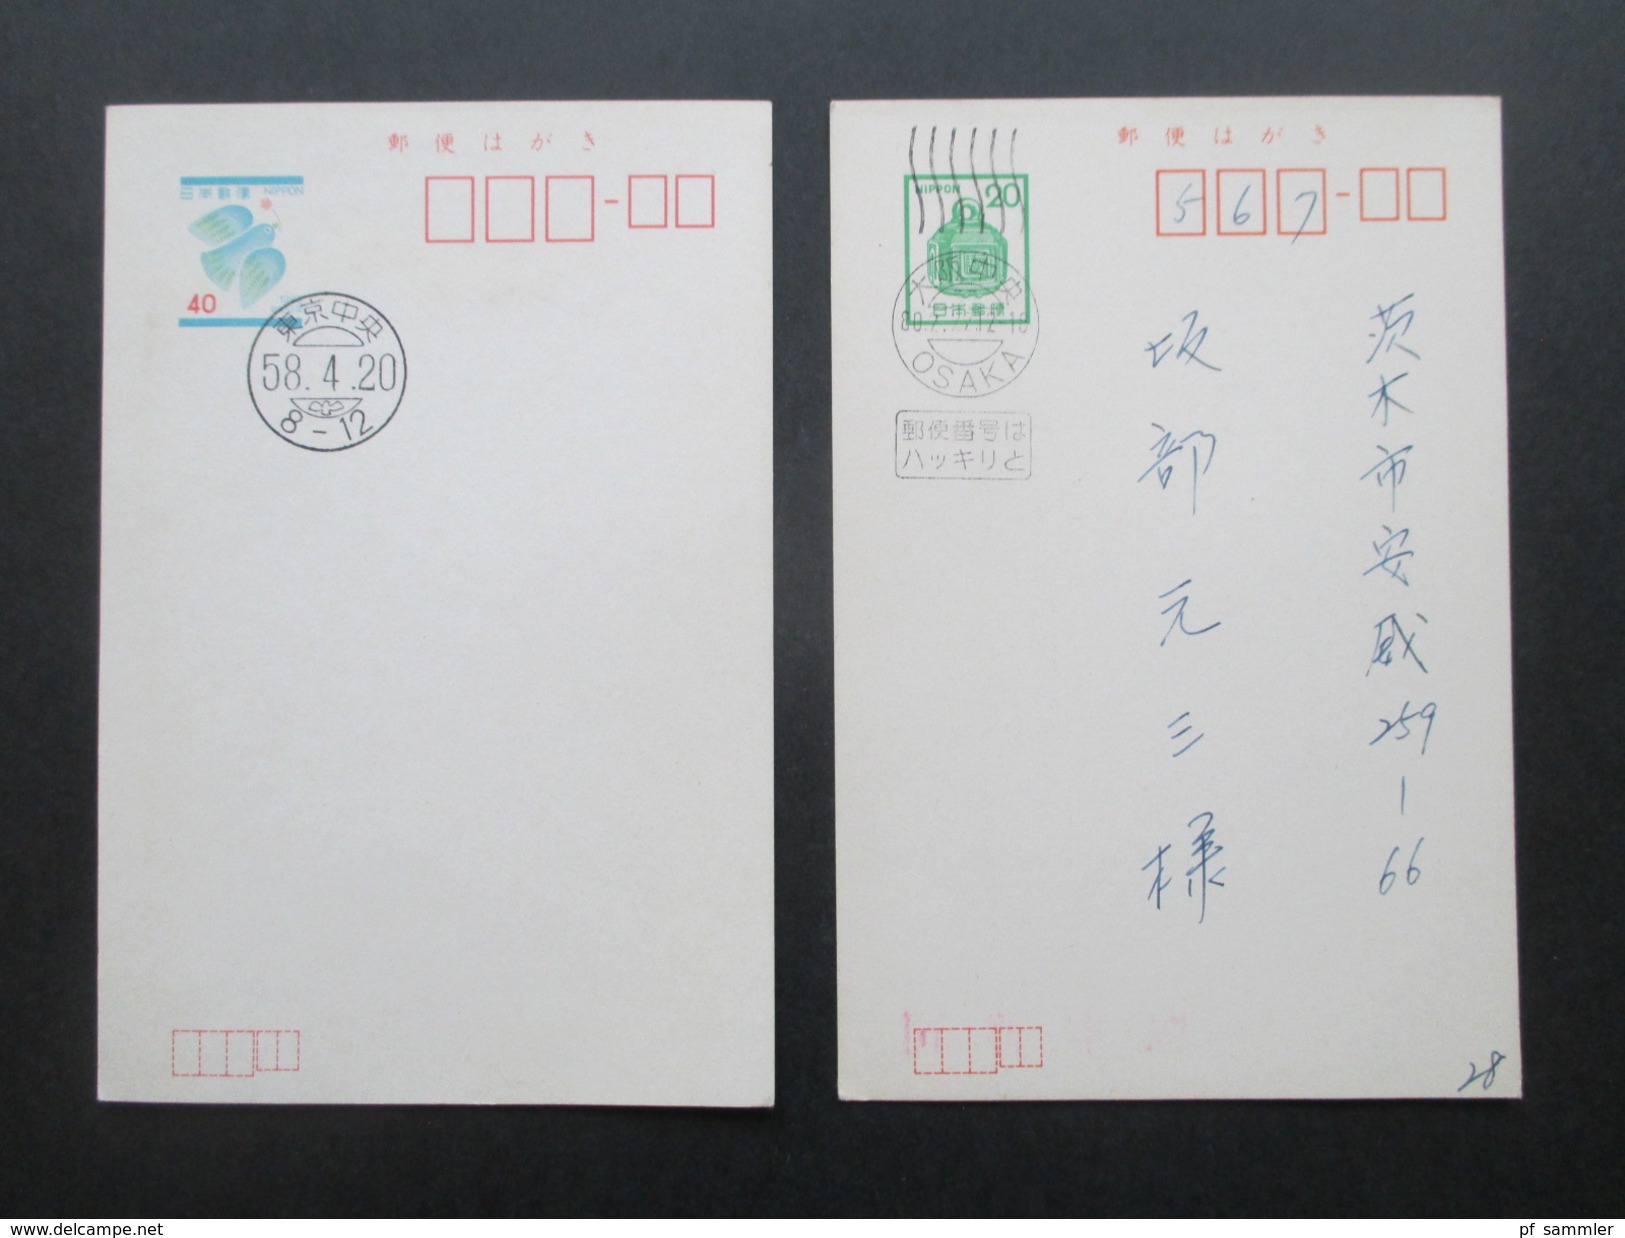 郵便はがき
日本郵便 NIPPON
40
東京中央
58.4.20
8-12
郵便はがき
NIPPON 20
日本郵便
567
大阪中央
OSAKA
郵便番号は
ハッキリと
茨木市安威259-66
坂部元三様
28
delcampe.net
pf_sammler